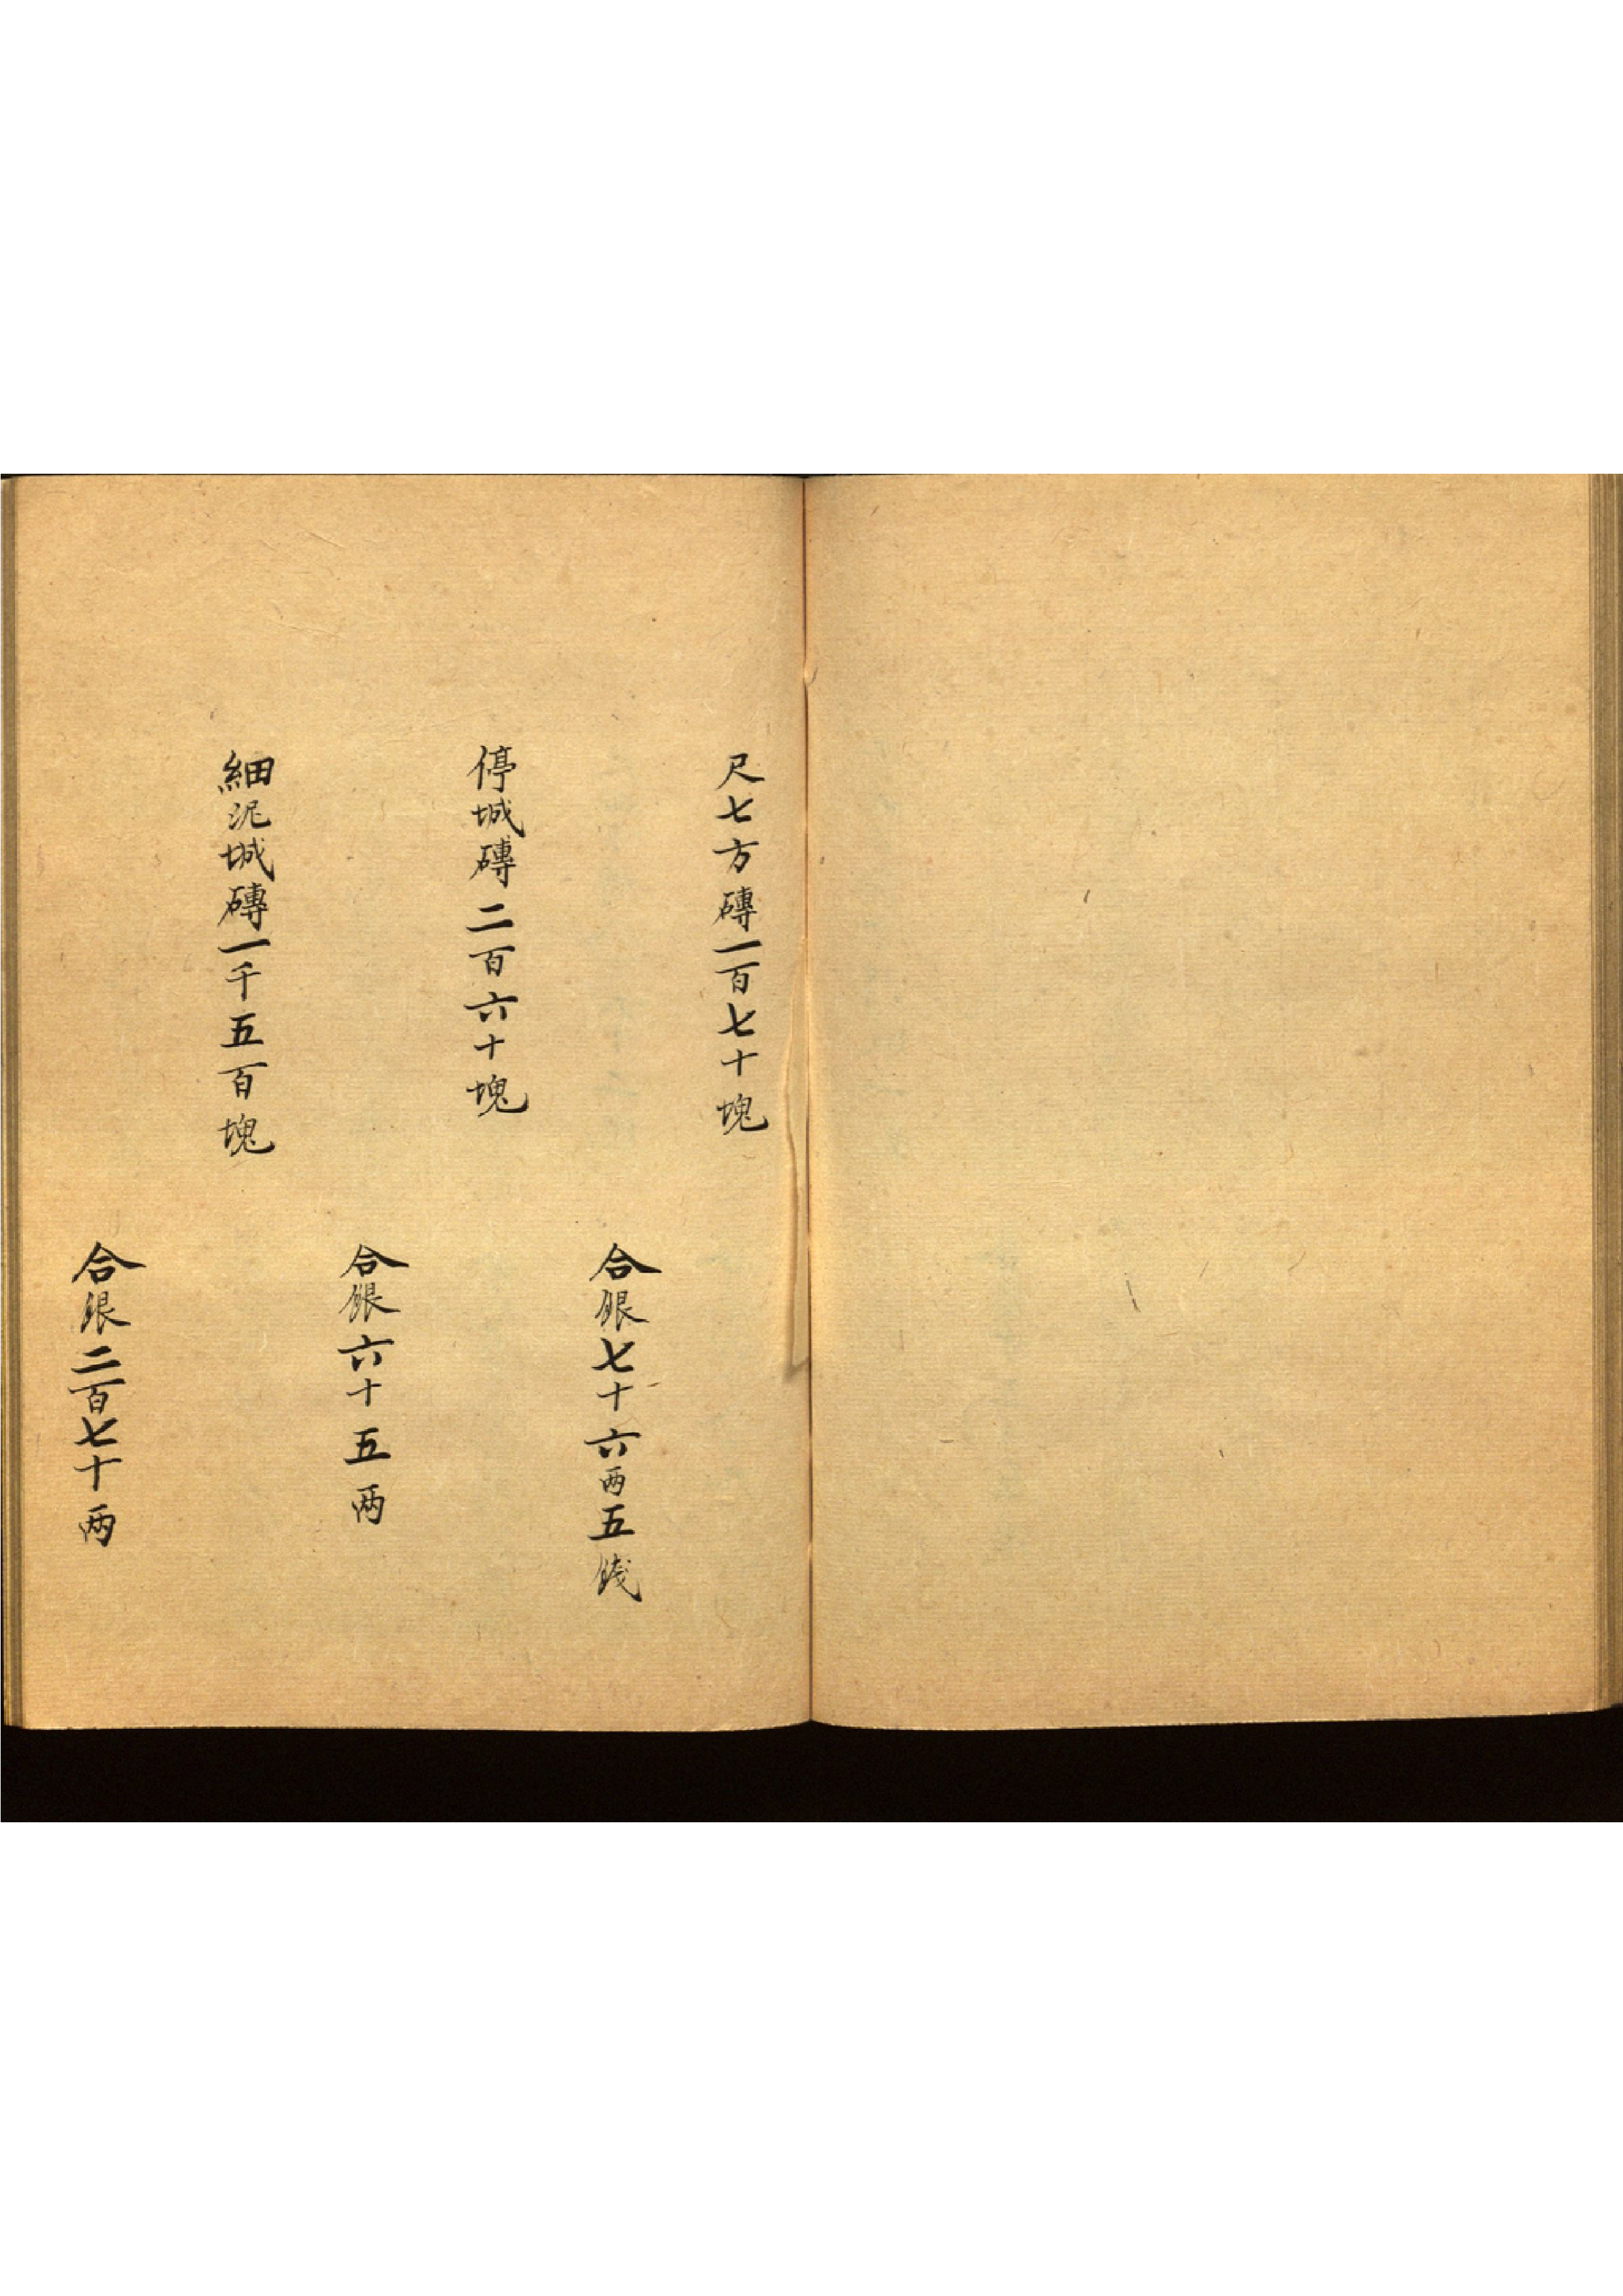 尺七方磚一百七十塊
合銀七十六两五錢
停城磚二百六十塊
合銀六十五两
細泥城磚一千五百塊
合銀二百七十两